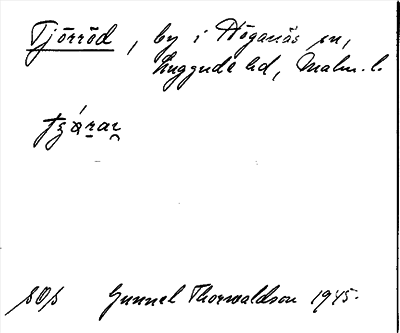 Tjörröd, by i Höganäs sn,
Luggude hd, Malm. l.
Gunnel Thorwaldson 1945.